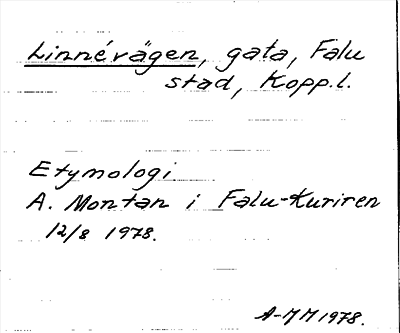 Linnévägen, gata, Falu
stad, Kopp.l.
Etymologi
A. Montan i Falu-Kuriren
12/8 1978.
A-MM 1978.